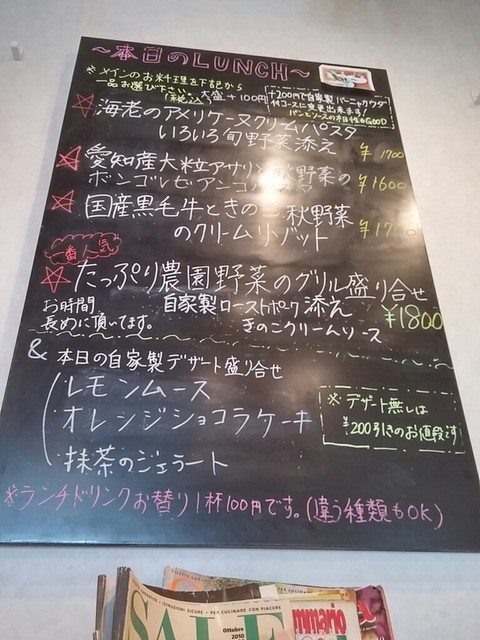 ～本日のLUNCH～
※メインのお料理を下記から
一品お選び下さい。
(税込) 大盛+100円
+200円で自家製バーニャカウダ
付コースに変更出来ます!
パンとソースの相性もGOOD
☆海老のアメリケーヌクリームパスタ
いろいろ旬野菜添え ¥1700
☆愛知産大粒アサリと秋野菜の
ボンゴレビアンコ ¥1600
☆国産黒毛牛ときのこ秋野菜
のクリームリゾット ¥1700
一番人気
☆たっぷり農園野菜のグリル盛り合せ
お時間
長めに頂いてます。
自家製ローストポーク添え ¥1800
きのこクリームソース
& 本日の自家製デザート盛り合せ
レモンムース
オレンジショコラケーキ
抹茶のジェラート
※デザート無しは
¥200引きのお値段
※ランチドリンクお替り1杯100円です。(違う種類もOK)
ISTRUZIONI SICURE - PER CUCINARE CON PIACERE
SALE
Ottobre
2010
mmario